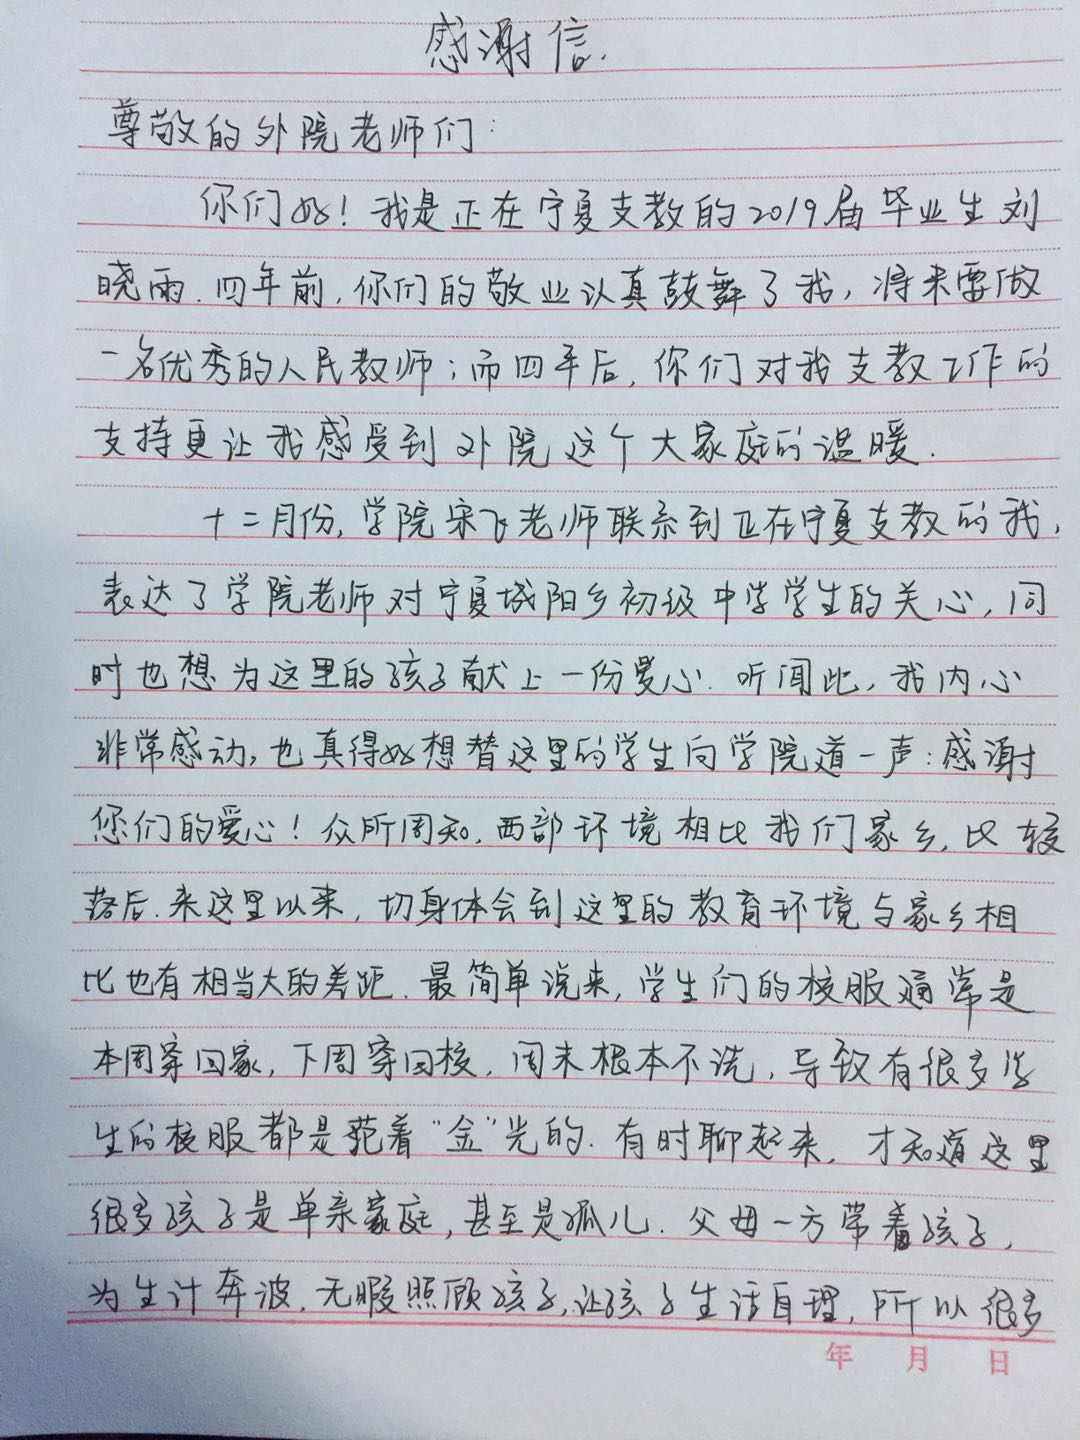 感谢信.
尊敬的外院老师们:
你们好!我是正在宁夏支教的2019届毕业生刘
晓雨.四年前,你们的敬业认真鼓舞了我,将来要做
一名优秀的人民教师;而四年后,你们对我支教工作的
支持更让我感受到外院这个大家庭的温暖.
十二月份,学院宋飞老师联系到正在宁夏支教的我,
表达了学院老师对宁夏城阳乡初级中学学生的关心,同
时也想为这里的孩子献上一份爱心.听闻此,我内心
非常感动,也真得好想替这里的学生向学院道一声:感谢
您们的爱心!众所周知,西部环境相比我们家乡,比较
落后.来这里以来,切身体会到这里的教育环境与家乡相
比也有相当大的差距.最简单说来,学生们的校服通常是
本周穿回家,下周穿回校,周末根本不洗,导致有很多学
生的校服都是范着"金"光的.有时聊起来,才知道这里
很多孩子是单亲家庭,甚至是孤儿.父母一方带着孩子,
为生计奔波,无暇照顾孩子,让孩子生活自理,所以很多
年 月 日